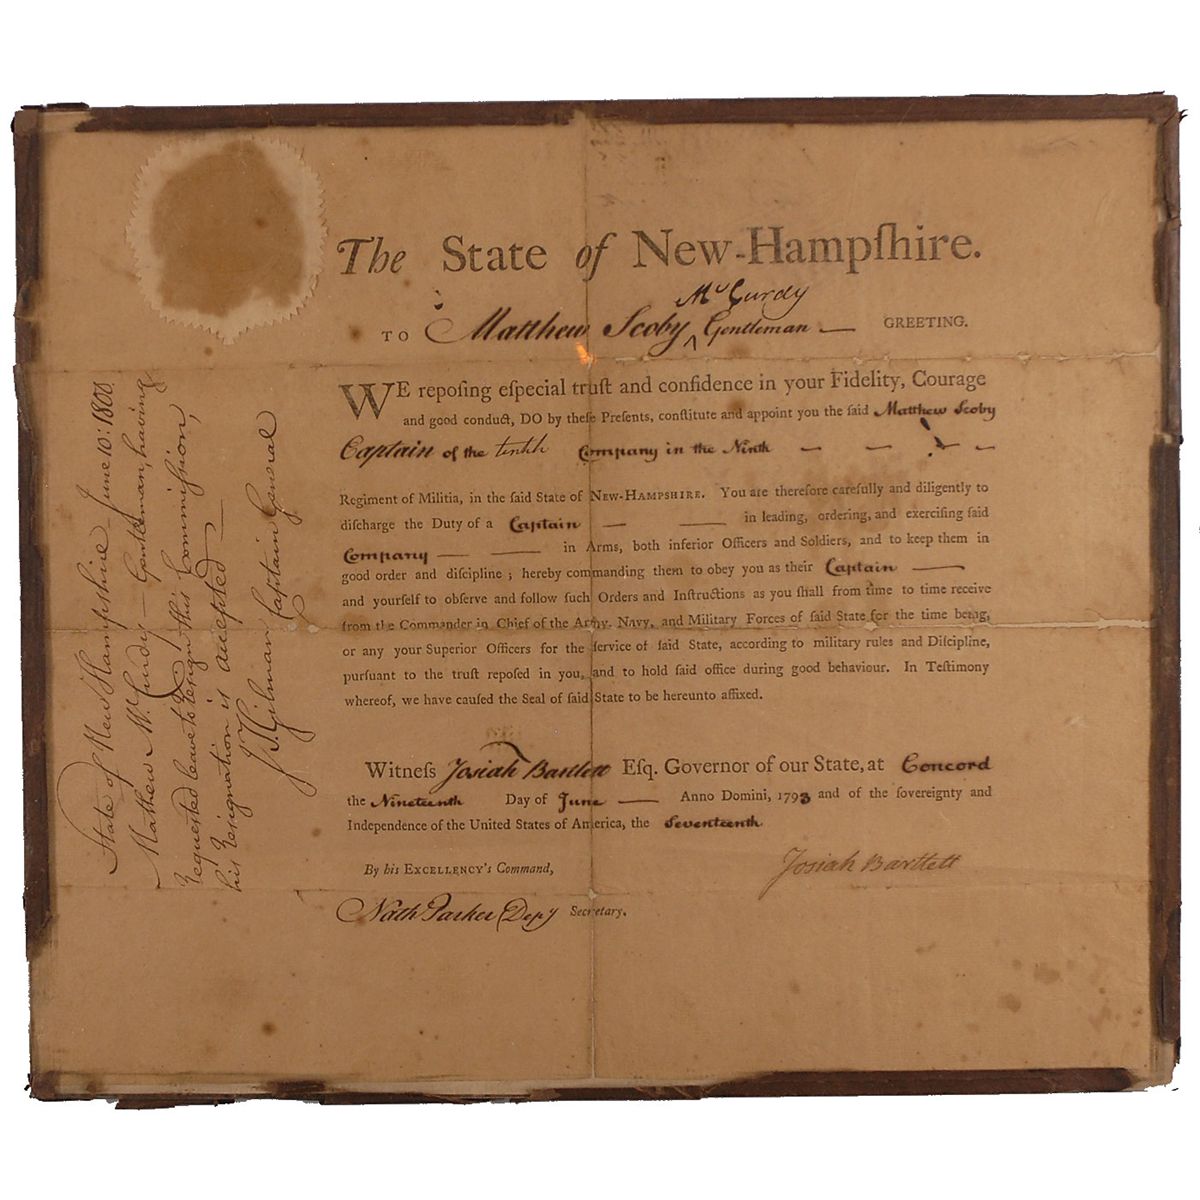 The State of New-Hampſhire.
Mc Curdy
TO Matthew Scoby ^ Gentleman — GREETING.
WE repoſing eſpecial truſt and confidence in your Fidelity, Courage
and good conduct, DO by theſe Preſents, conſtitute and appoint you the ſaid Matthew Scoby
Captain of the tenth Company in the Ninth — — — —
Regiment of Militia, in the ſaid State of NEW-HAMPSHIRE. You are therefore carefully and diligently to
diſcharge the Duty of a Captain — — in leading, ordering, and exerciſing ſaid
Company — — in Arms, both inferior Officers and Soldiers, and to keep them in
good order and diſcipline; hereby commanding them to obey you as their Captain —
and yourſelf to obſerve and follow ſuch Orders and Inſtructions as you ſhall from time to time receive
from the Commander in Chief of the Army, Navy, and Military Forces of ſaid State for the time being,
or any your Superior Officers for the ſervice of ſaid State, according to military rules and Diſcipline,
purſuant to the truſt repoſed in you, and to hold ſaid office during good behaviour. In Teſtimony
whereof, we have cauſed the Seal of ſaid State to be hereunto affixed.
Witneſs Josiah Bartlett Eſq. Governor of our State, at Concord
the Nineteenth Day of June — Anno Domini, 1793 and of the ſovereignty and
Independence of the United States of America, the Seventeenth.
By his EXCELLENCY's Command,
Josiah Bartlett
Nath Parker Depy Secretary.
State of New Hampshire — June 10: 1800.
Matthew McCurdy — Gentleman, having
requested leave to resign this Commission,
his resignation is accepted —
J. T. Gilman Captain General